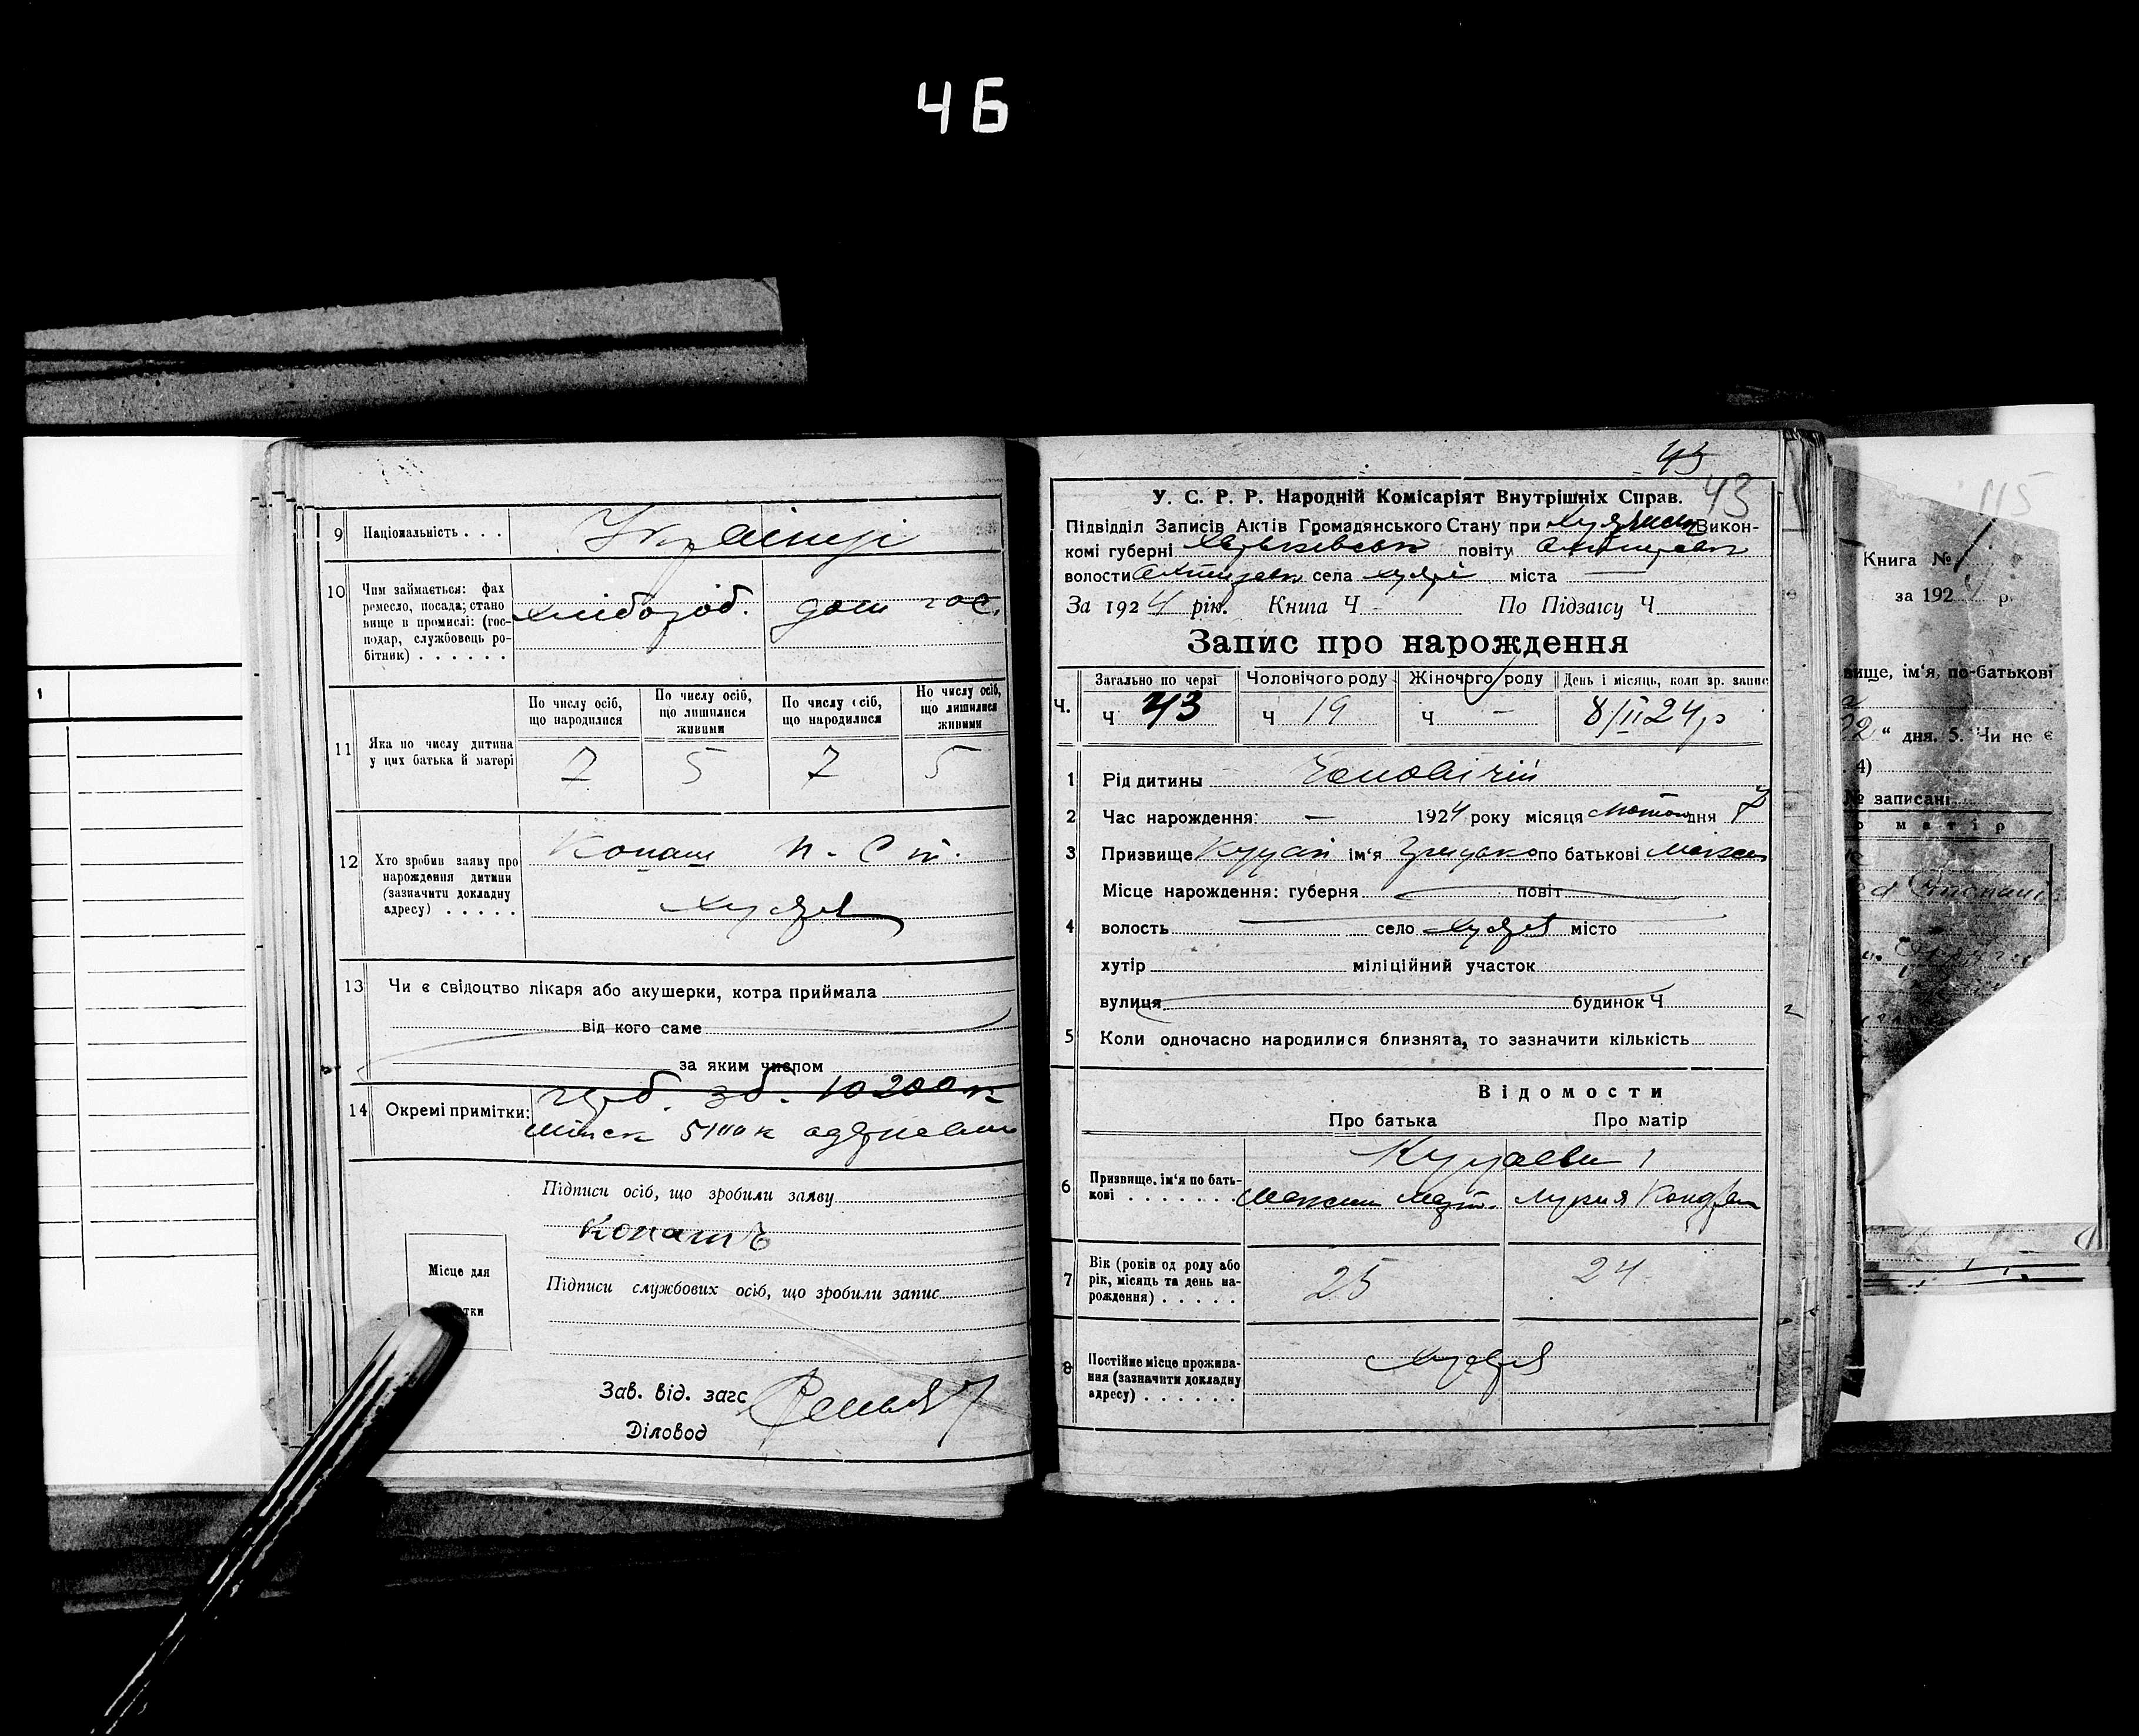 46
9 Національність . . . Українці
10 Чим займається: фах
ремесло, посада; стано
вище в промислі: (гос-
подар, службовець ро-
бітник) . . . . . .
хлібороб. дом гос.
По числу осіб, що народилися
По числу осіб, що лишилися живими
По числу осіб, що народилися
Но числу осіб, що лишилися живими
11 Яка по числу дитина
у цих батька й матері
7 5 7 5
12 Хто зробив заяву про
нарождення дитини
(зазначити докладну
адресу) . . . . .
Копаш П. Ст.
13 Чи є свідоцтво лікаря або акушерки, котра приймала
від кого саме
за яким числом
14 Окремі примітки:
герб. зб. 10200 к
Підписи осіб, що зробили заяву
Копашъ
Місце для
тки
Підписи службових осіб, що зробили запис
Зав. від. загс
Діловод
43
43
У. С. Р. Р. Народній Комісаріят Внутрішніх Справ.
Підвідділ Записів Актів Громадянського Стану при Викон-
комі губерні Харьківськ повіту
волости села міста —
За 1924 рік. Книга Ч По Підзагсу Ч
Запис про нарождення
Загально по черзі Чоловічого роду Жіночого роду День і місяць, коли зр. запис
Ч. Ч 43 Ч 19 Ч — 8/II 24 р
1 Рід дитины Чоловічий
2 Час нарождення: — 1924 року місяця дня 7
3 Призвище Куцай ім‘я Грицько по батькові Максим
Місце нарождення: губерня повіт
4 волость село місто
хутір міліційний участок
вулиця будинок Ч
5 Коли одночасно народилися близнята, то зазначити кількість
Відомости
Про батька Про матір
6 Призвище, ім‘я по бать-
кові . . . . . . .
Куцаєви
Максим Март. Лукия Кондрат
7 Вік (років од роду або
рік, місяць та день на-
рождення) . . . . .
25 24
8 Постійне місце прожива-
ння (зазначити докладну
адресу) . . . . . .
115
Книга №
за 1924 р.
вище, ім‘я, по-батькові
“ дня. 5. Чи не є
4)
№ записані
о матір